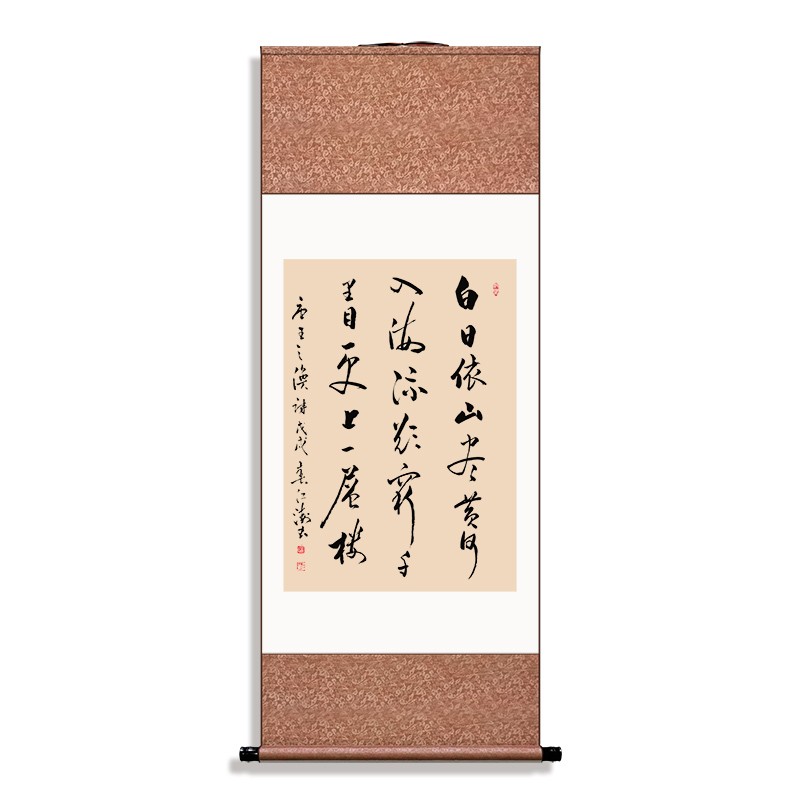 白日依山尽黄河
入海流欲穷千
里目更上一层楼
唐王之涣诗戊戌春江涛书